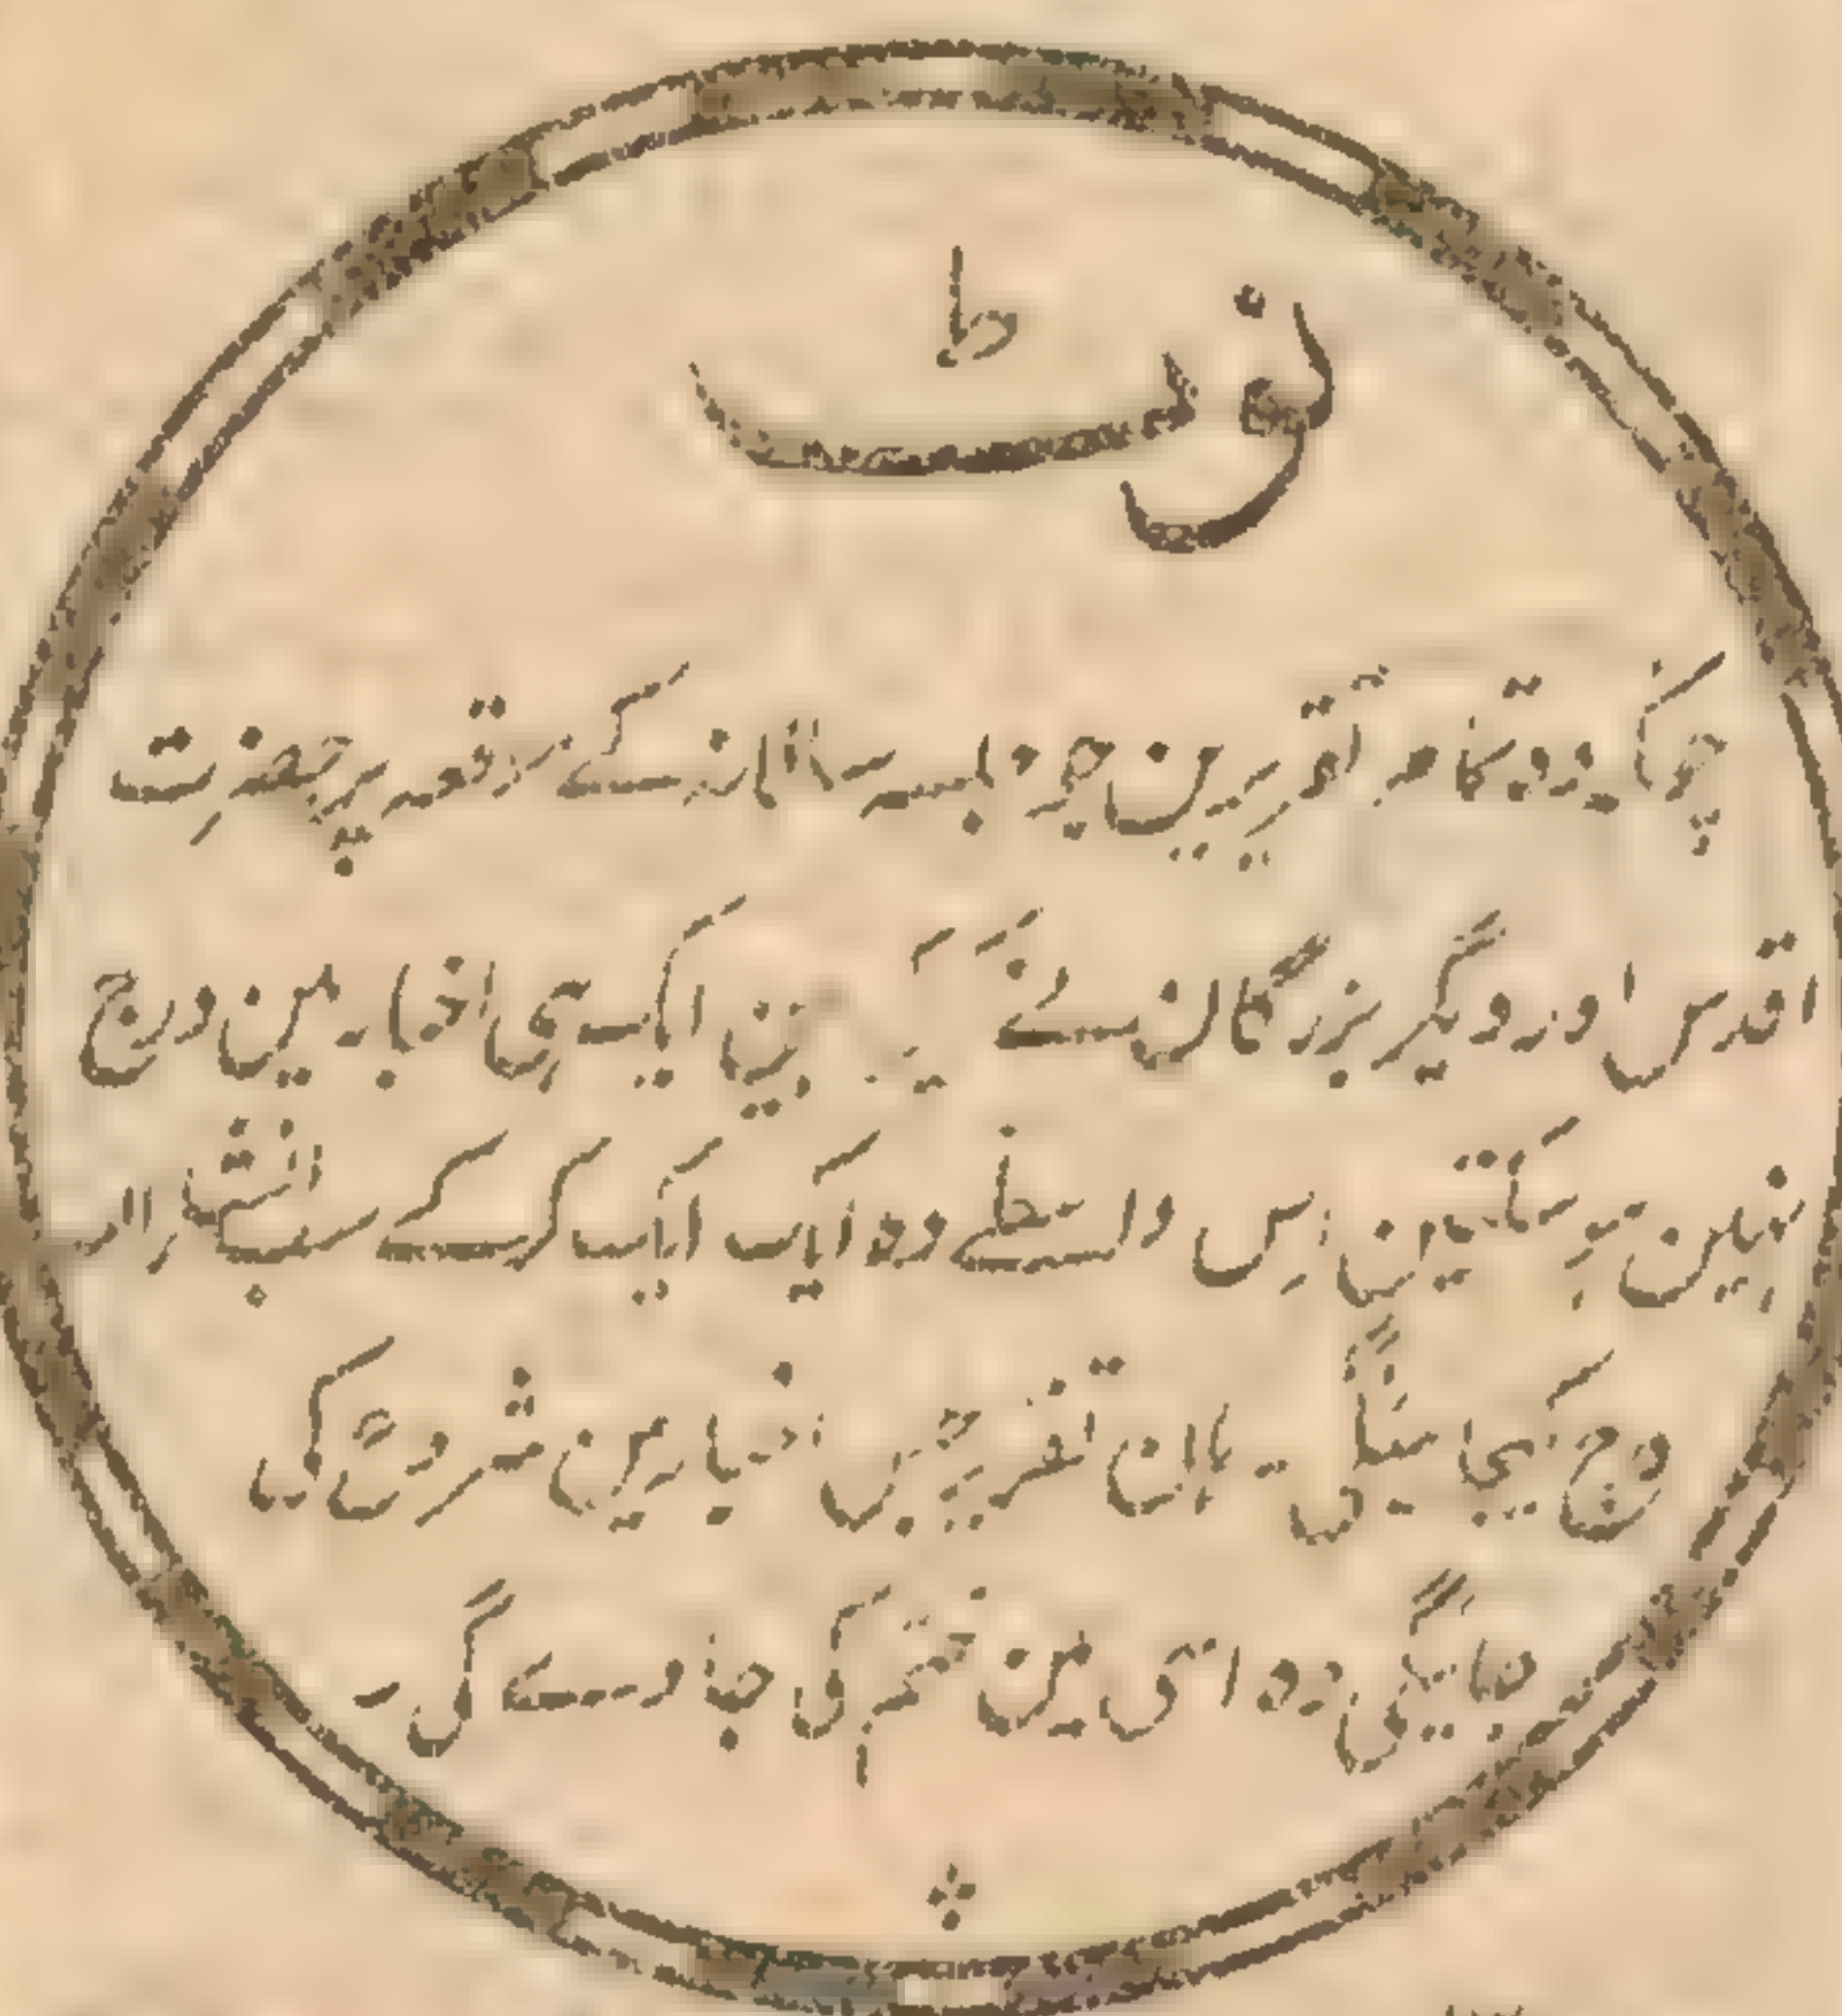 نوٹ
چونکہ وہ تمام تقریرین جو جلسہ سالانہ کے موقعہ پر حضرت
اقدس اور دیگر بزرگان نے کی ہین ایک ہی اخبار مین درج
نہین ہو سکتین اِس واسطے وہ ایک ایک کرکے سب انشاء اللہ
درج کیجائینگی - ہان تقریر جس اخبار مین شروع کی
جائیگی وہ اسی مین ختم کی جاوے گی -